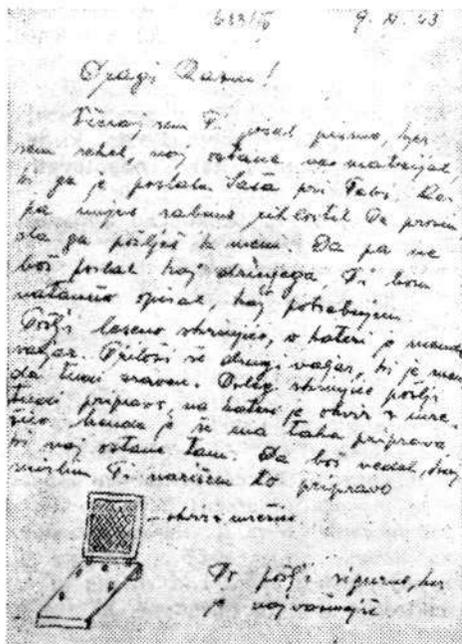 9. XI. 43
Dragi
Včeraj sem Ti pisal pismo, kjer
sem rekel, naj ostane ves material,
ki ga je poslala Saša pri Tebi.
pa nujno rabimo Te prosim,
da ga pošlješ k meni. Da pa ne
boš poslal kaj drugega, Ti bom
natančno opisal, kaj potrebujem
Pošlji leseno skrinjico, v kateri je
valjar. Priloži še drugi valjar, ki je
da tudi zraven. Poleg skrinjice pošlji
tudi pripravo, na kateri je okvir z mre-
žico je še ena taka priprava
ki naj ostane tam. Da boš vedel, kaj
mislim Ti narišem to pripravo
okvir z mrežico
To pošlji sigurno, ker
je najvažnejše